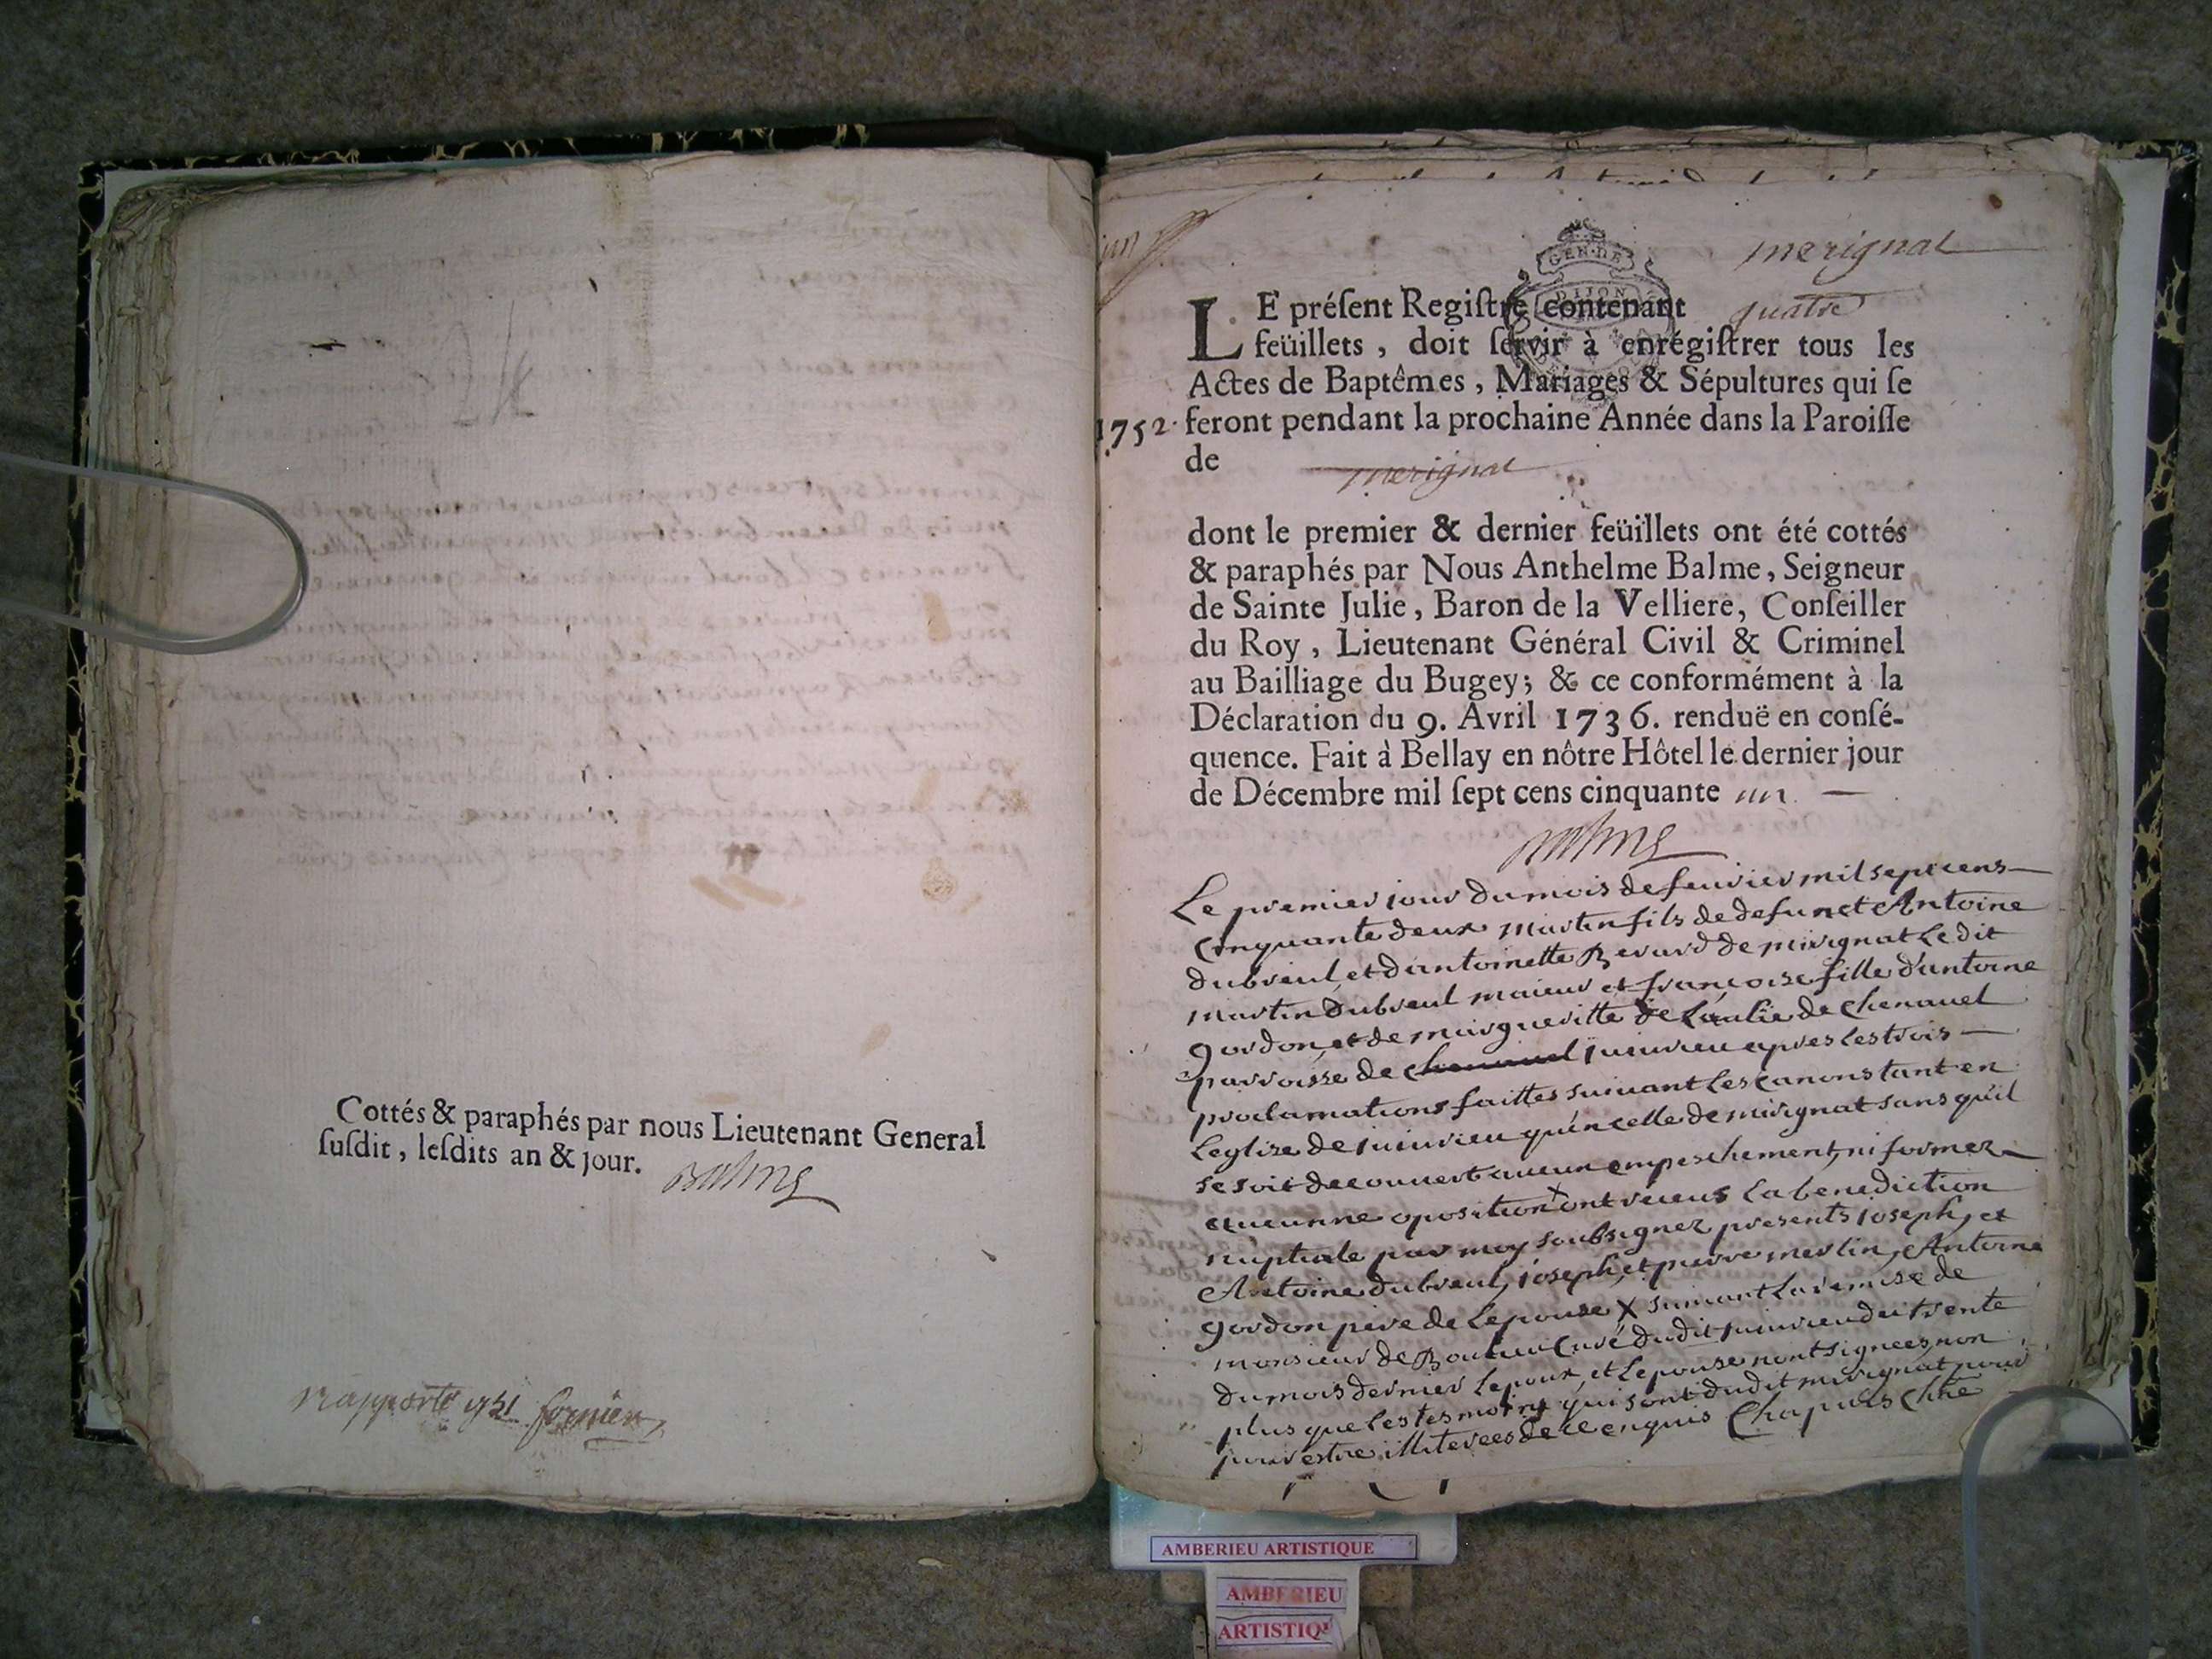 24
Cottés & paraphés par nous Lieutenant General
ſuſdit, leſdits an & jour. Balme
Rapporté 1751
merignat
GEN · DE
DIJON
LE préſent Regiſtre contenant quatre
feüillets, doit ſervir à enrégiſtrer tous les
Actes de Baptêmes, Mariages & Sépultures qui ſe
1752. feront pendant la prochaine Année dans la Paroiſſe
de merignat
dont le premier & dernier feüillets ont été cottés
& paraphés par Nous Anthelme Balme, Seigneur
de Sainte Julie, Baron de la Velliere, Conſeiller
du Roy, Lieutenant Général Civil & Criminel
au Bailliage du Bugey; & ce conformément à la
Déclaration du 9. Avril 1736. renduë en conſé-
quence. Fait à Bellay en nôtre Hôtel le dernier jour
de Décembre mil ſept cens cinquante un
Balme
Le premier iour du mois de feuvier mil sept cens
cinquante deux martin fils de defunct Antoine
dubreul, et d'antoinette Berard de mirignat Le dit
martin dubreul maieur et françoise fille d'antoine
gordon, et de margueritte de Laulie de chenauel
parroisse de chenauel juiurieu apres les trois
proclamations faittes suiuant les canons tant en
Leglise de iuiurieu qu'en celle de mirignat sans qu'il
se soit decouuert aucun empeschement, ni former
aucunne oposition x ont receus la benediction
nuptiale par moy soubsignez presents ioseph, et
Antoine dubreul, ioseph, et pierre merlin, Antoine
gordon pere de Lepouse x suiuant la remise de
monsieur de Curé dudit juiurieu du trente
du mois dernier Lepoux, et Lepouse nont signees non
plus que les tesmoins qui sont dudit mirignat pour
pour estre illiterees de ce enquis Chapuis
AMBERIEU ARTISTIQUE
AMBERIEU
ARTISTIQ